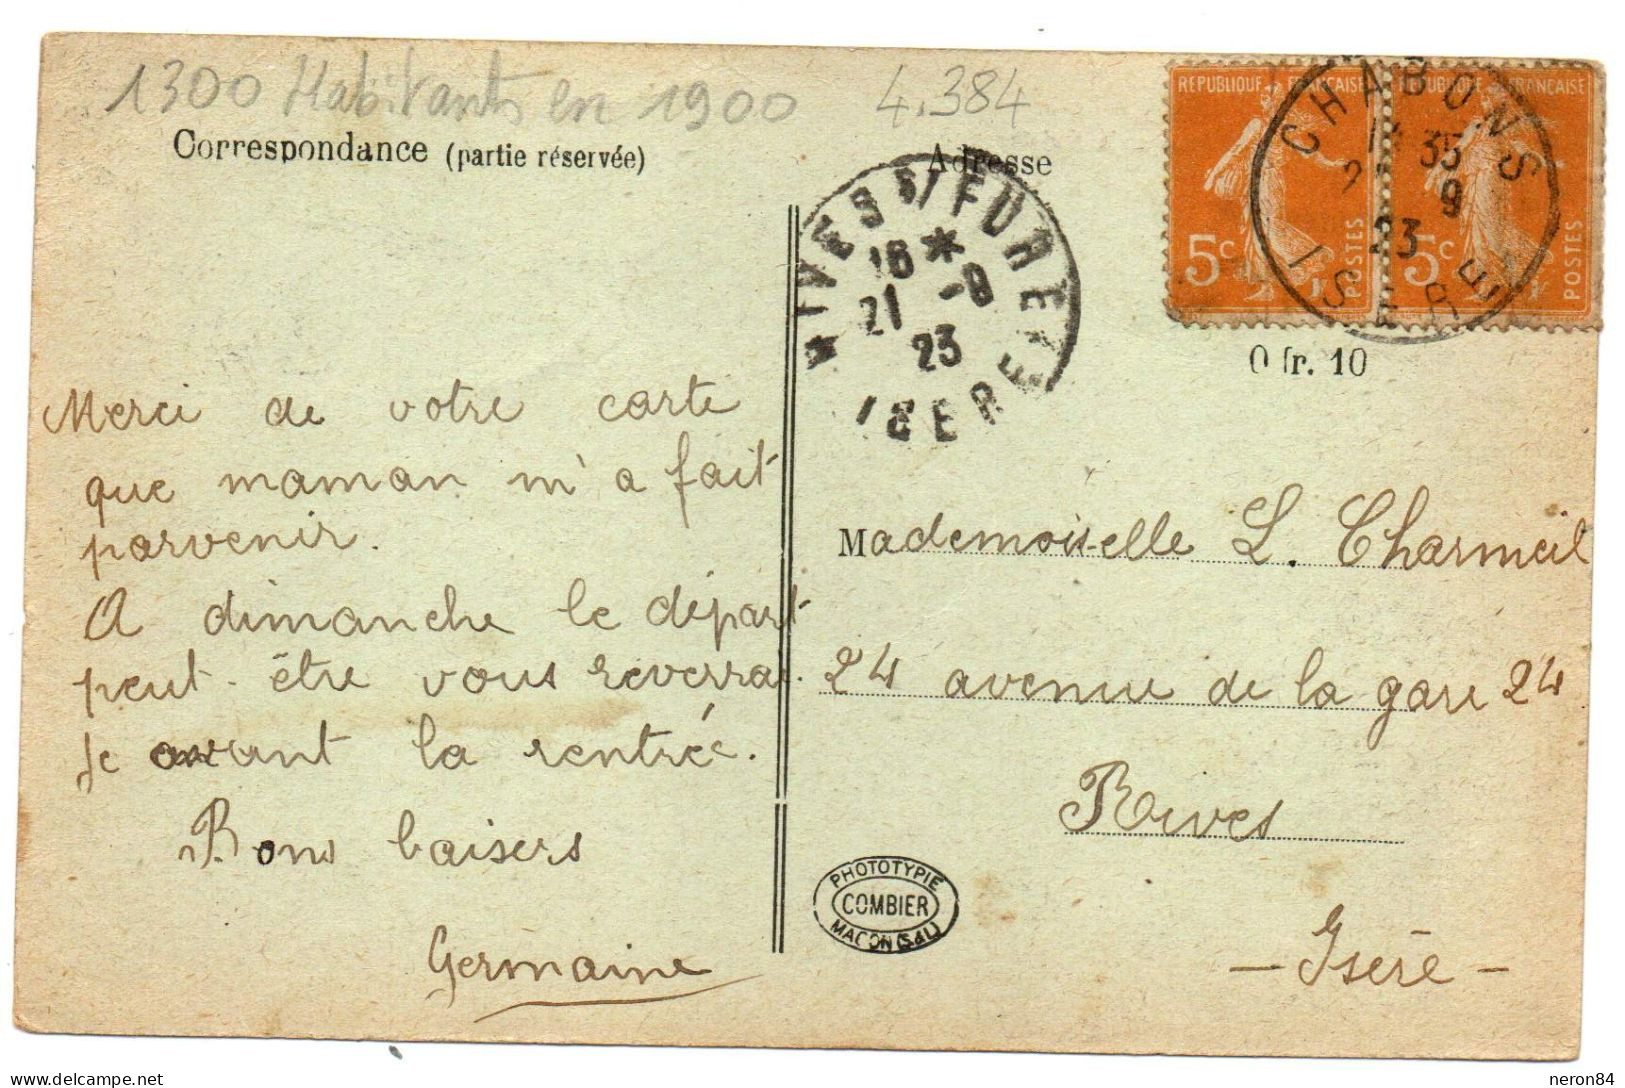 1300 Habitants en 1900
4.384
Correspondance (partie réservée)
Adresse
REPUBLIQUE FRANÇAISE
5c
POSTES
REPUBLIQUE FRANÇAISE
5c
POSTES
CHABONS
35
9
23
ISERE
RIVES S/ FURE
16 *
21 -9
23
ISERE
0 fr. 10
Merci de votre carte
que maman m'a fait
parvenir.
A dimanche le départ
peut-être vous reverrai.
je avant la rentrée.
Bons baisers
Germaine
Mademoiselle L. Charmeil
24 avenue de la gare 24
Rives
- Isère -
PHOTOTYPIE
COMBIER
MACON (S&L)
delcampe.net
neron84